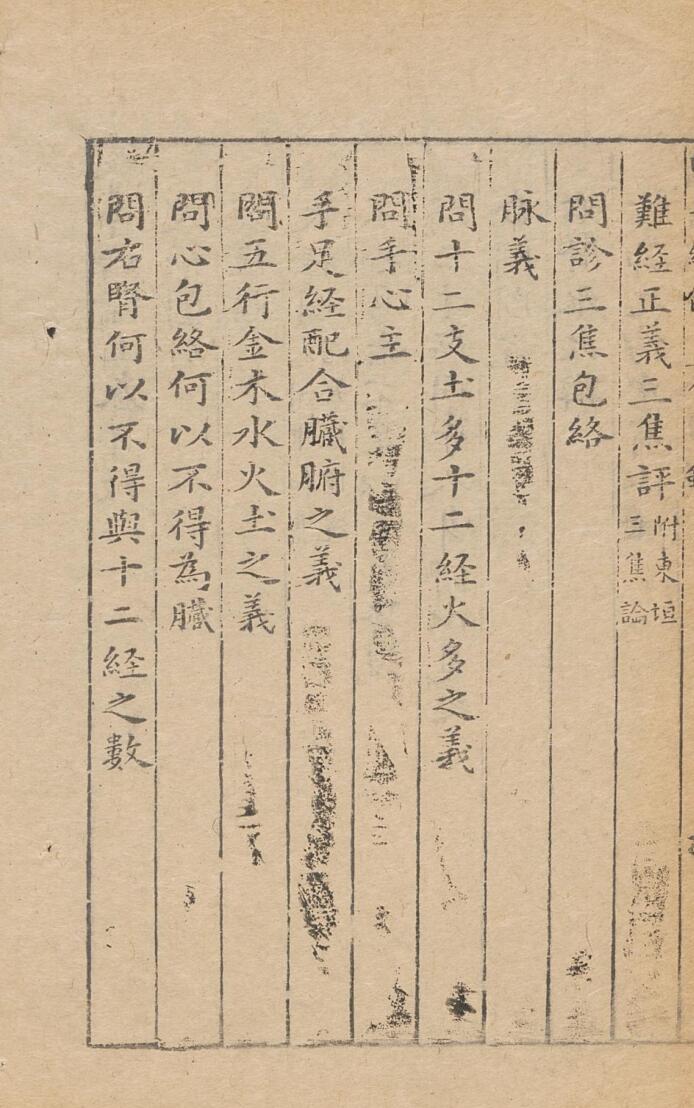 難経正義三焦評附東垣三焦論
問診三焦包絡
脉義
問十二支土多十二経火多之義
問手心主
手足経配合臓腑之義
問五行金木水火土之義
問心包絡何以不得為臓
問右腎何以不得與十二経之數